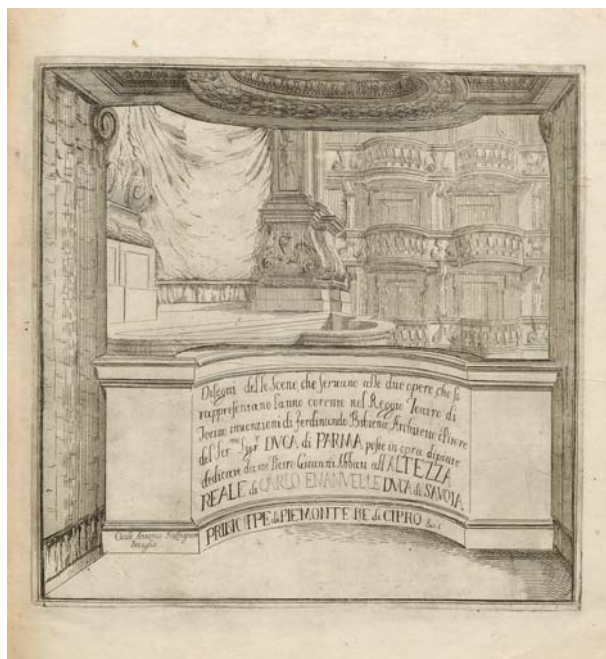 Disegni delle Scene, che servano alle due opere che si
rappresentano l'anno corente nel Reggio Teatro di
Torino invenzioni di Ferdinando Bibiena, Architetto e Pitore
del Ser.mo Sig.r DUCA di PARMA poste in opra dipinte
dedicate da me Pietro Giovanni Abbiati all'ALTEZZA
REALE di CARLO EMANVELLE DUCA di SAVOIA
PRINCIPE di PIEMONTE RE di CIPRO